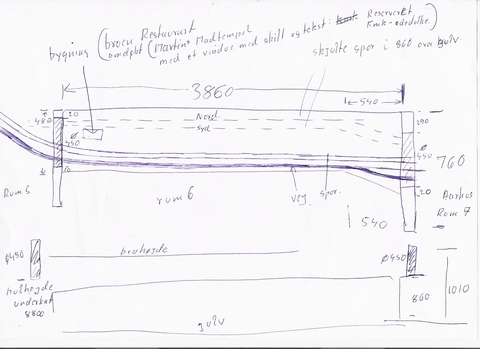 bygning (broen Restaurant
(Martins Madtempel
med et vindue med skilt og tekst: Reserveret
skjulte spor i 860 over gulv.
3860
540
480
20
Nord
Syd
290
450
450
760
10
20
Rum 5
rum 6
vej
spor.
540
Aarhus
Rum 7
Ø450
brohøjde
Ø450
underkant
8800
860
1010
gulv